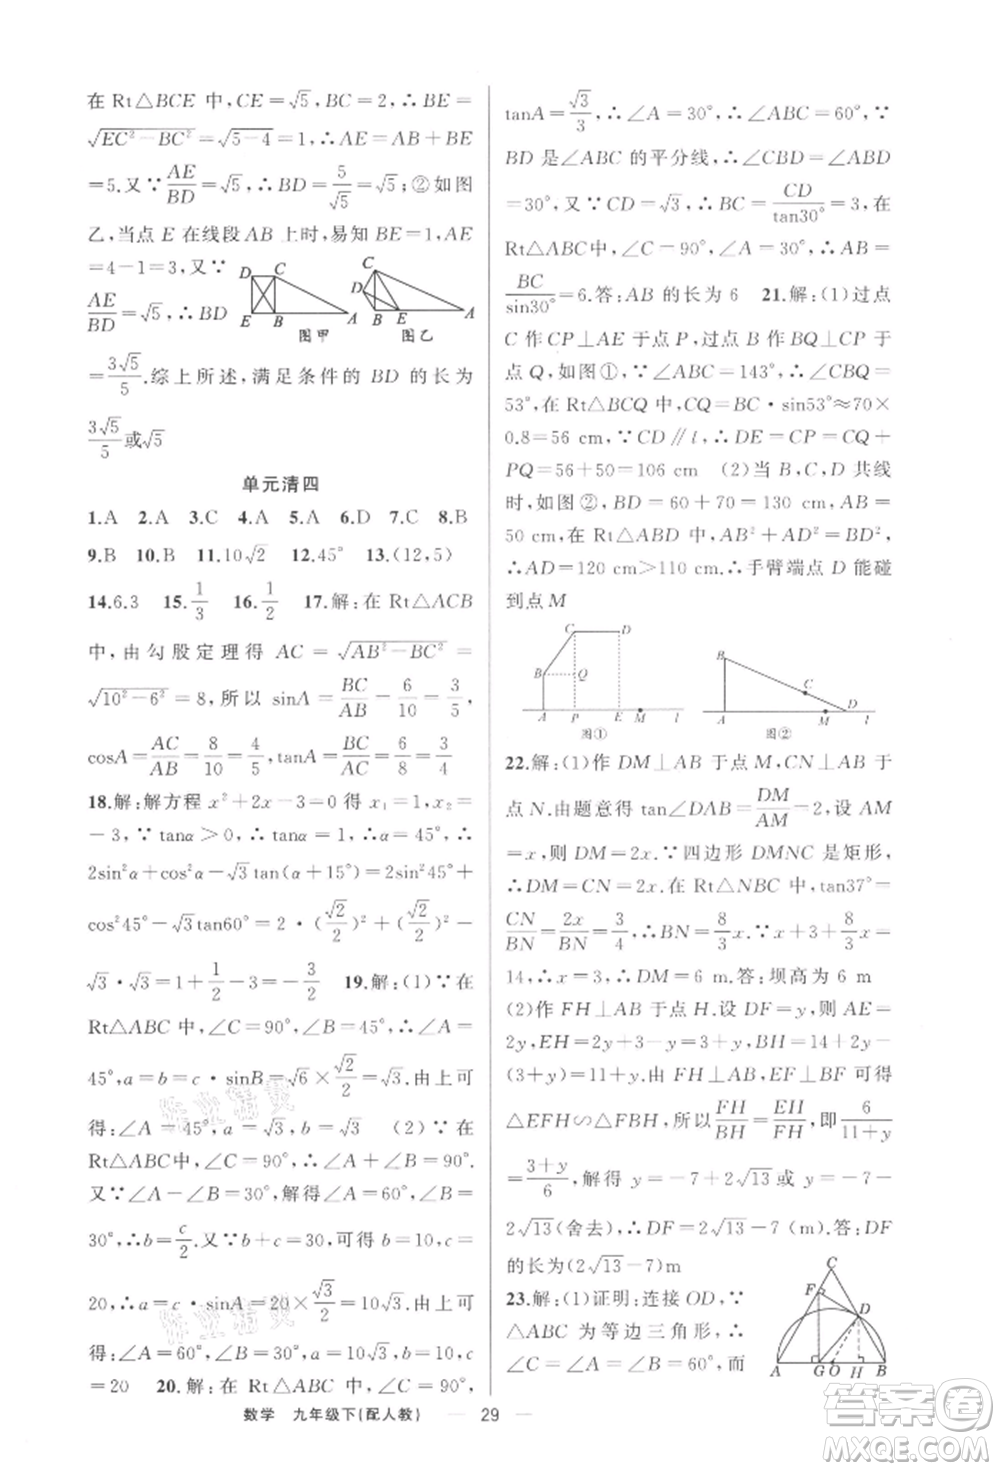 在 Rt△BCE 中,CE=√5,BC=2,∴BE=
√(EC²-BC²)=√(5-4)=1,∴AE=AB+BE
=5.又∵AE/BD=√5,∴BD=5/√5=√5;②如图
乙,当点 E 在线段 AB 上时,易知 BE=1,AE
=4-1=3,又∵
AE/BD=√5,∴BD
D C E B A 图甲
C D B E A 图乙
=3√5/5.综上所述,满足条件的 BD 的长为
3√5/5或√5
单元清四
1.A 2.A 3.C 4.A 5.A 6.D 7.C 8.B
9.B 10.B 11.10√2 12.45° 13.(12,5)
14.6.3 15.1/3 16.1/2 17.解:在 Rt△ACB
中,由勾股定理得 AC=√(AB²-BC²)=
√(10²-6²)=8,所以 sinA=BC/AB=6/10=3/5,
cosA=AC/AB=8/10=4/5,tanA=BC/AC=6/8=3/4
18.解:解方程 x²+2x-3=0 得 x₁=1,x₂=
-3,∵tanα>0,∴tanα=1,∴α=45°,∴
2sin²α+cos²α-√3tan(α+15°)=2sin²45°+
cos²45°-√3tan60°=2·(√2/2)²+(√2/2)²-
√3·√3=1+1/2-3=-3/2 19.解:(1)∵在
Rt△ABC 中,∠C=90°,∠B=45°,∴∠A=
45°,a=b=c·sinB=√6×√2/2=√3.由上可
得:∠A=45°,a=√3,b=√3 (2)∵在
Rt△ABC 中,∠C=90°,∴∠A+∠B=90°.
又∵∠A-∠B=30°,解得∠A=60°,∠B=
30°,∴b=c/2.又∵b+c=30,∴b=10,c=
20,∴a=c·sinA=20×√3/2=10√3.由上可
得:∠A=60°,∠B=30°,a=10√3,b=10,c
=20 20.解:在 Rt△ABC 中,∠C=90°,
tanA=√3/3,∴∠A=30°,∴∠ABC=60°,∵
BD 是∠ABC 的平分线,∴∠CBD=∠ABD
=30°,又∵CD=√3,∴BC=CD/tan30°=3,在
Rt△ABC中,∠C=90°,∠A=30°,∴AB=
BC/sin30°=6.答:AB 的长为 6 21.解:(1)过点
C 作 CP⊥AE 于点 P,过点 B 作 BQ⊥CP 于
点 Q,如图①,∵∠ABC=143°,∴∠CBQ=
53°,在 Rt△BCQ 中,CQ=BC·sin53°≈70×
0.8=56 cm,∵CD∥l,∴DE=CP=CQ+
PQ=56+50=106 cm (2)当 B,C,D 共线
时,如图②,BD=60+70=130 cm,AB=
50 cm,在 Rt△ABD 中,AB²+AD²=BD²,
∴AD=120 cm>110 cm.∴手臂端点 D 能碰
到点 M
C D B Q A P E M l 图①
B C A M D l 图②
22.解:(1)作 DM⊥AB 于点 M,CN⊥AB 于
点 N.由题意得 tan∠DAB=DM/AM=2,设 AM
=x,则 DM=2x.∵四边形 DMNC 是矩形,
∴DM=CN=2x.在 Rt△NBC 中,tan37°=
CN/BN=2x/BN=3/4,∴BN=8/3x.∵x+3+8/3x=
14,∴x=3,∴DM=6.答:坝高为 6 m
(2)作 FH⊥AB 于点 H.设 DF=y,则 AE=
2y,EH=3+2y-y=3+y,BH=14+2y-
(3+y)=11+y.由 FH⊥AB,EF⊥BF 可得
△EFH∽△FBH,∴FH/BH=EH/FH,即6/(11+y)
=(3+y)/6,解得 y=-7+2√13或 y=-7-
2√13(舍去),∴DF=2√13-7(m).答:DF
的长为(2√13-7)m
23.解:(1)证明:连接 OD,∵
△ABC 为等边三角形,∴
∠C=∠A=∠B=60°,而
C F D A G O H B
数学 九年级下(配人教) — 29 —
答案圈
MXQE.COM